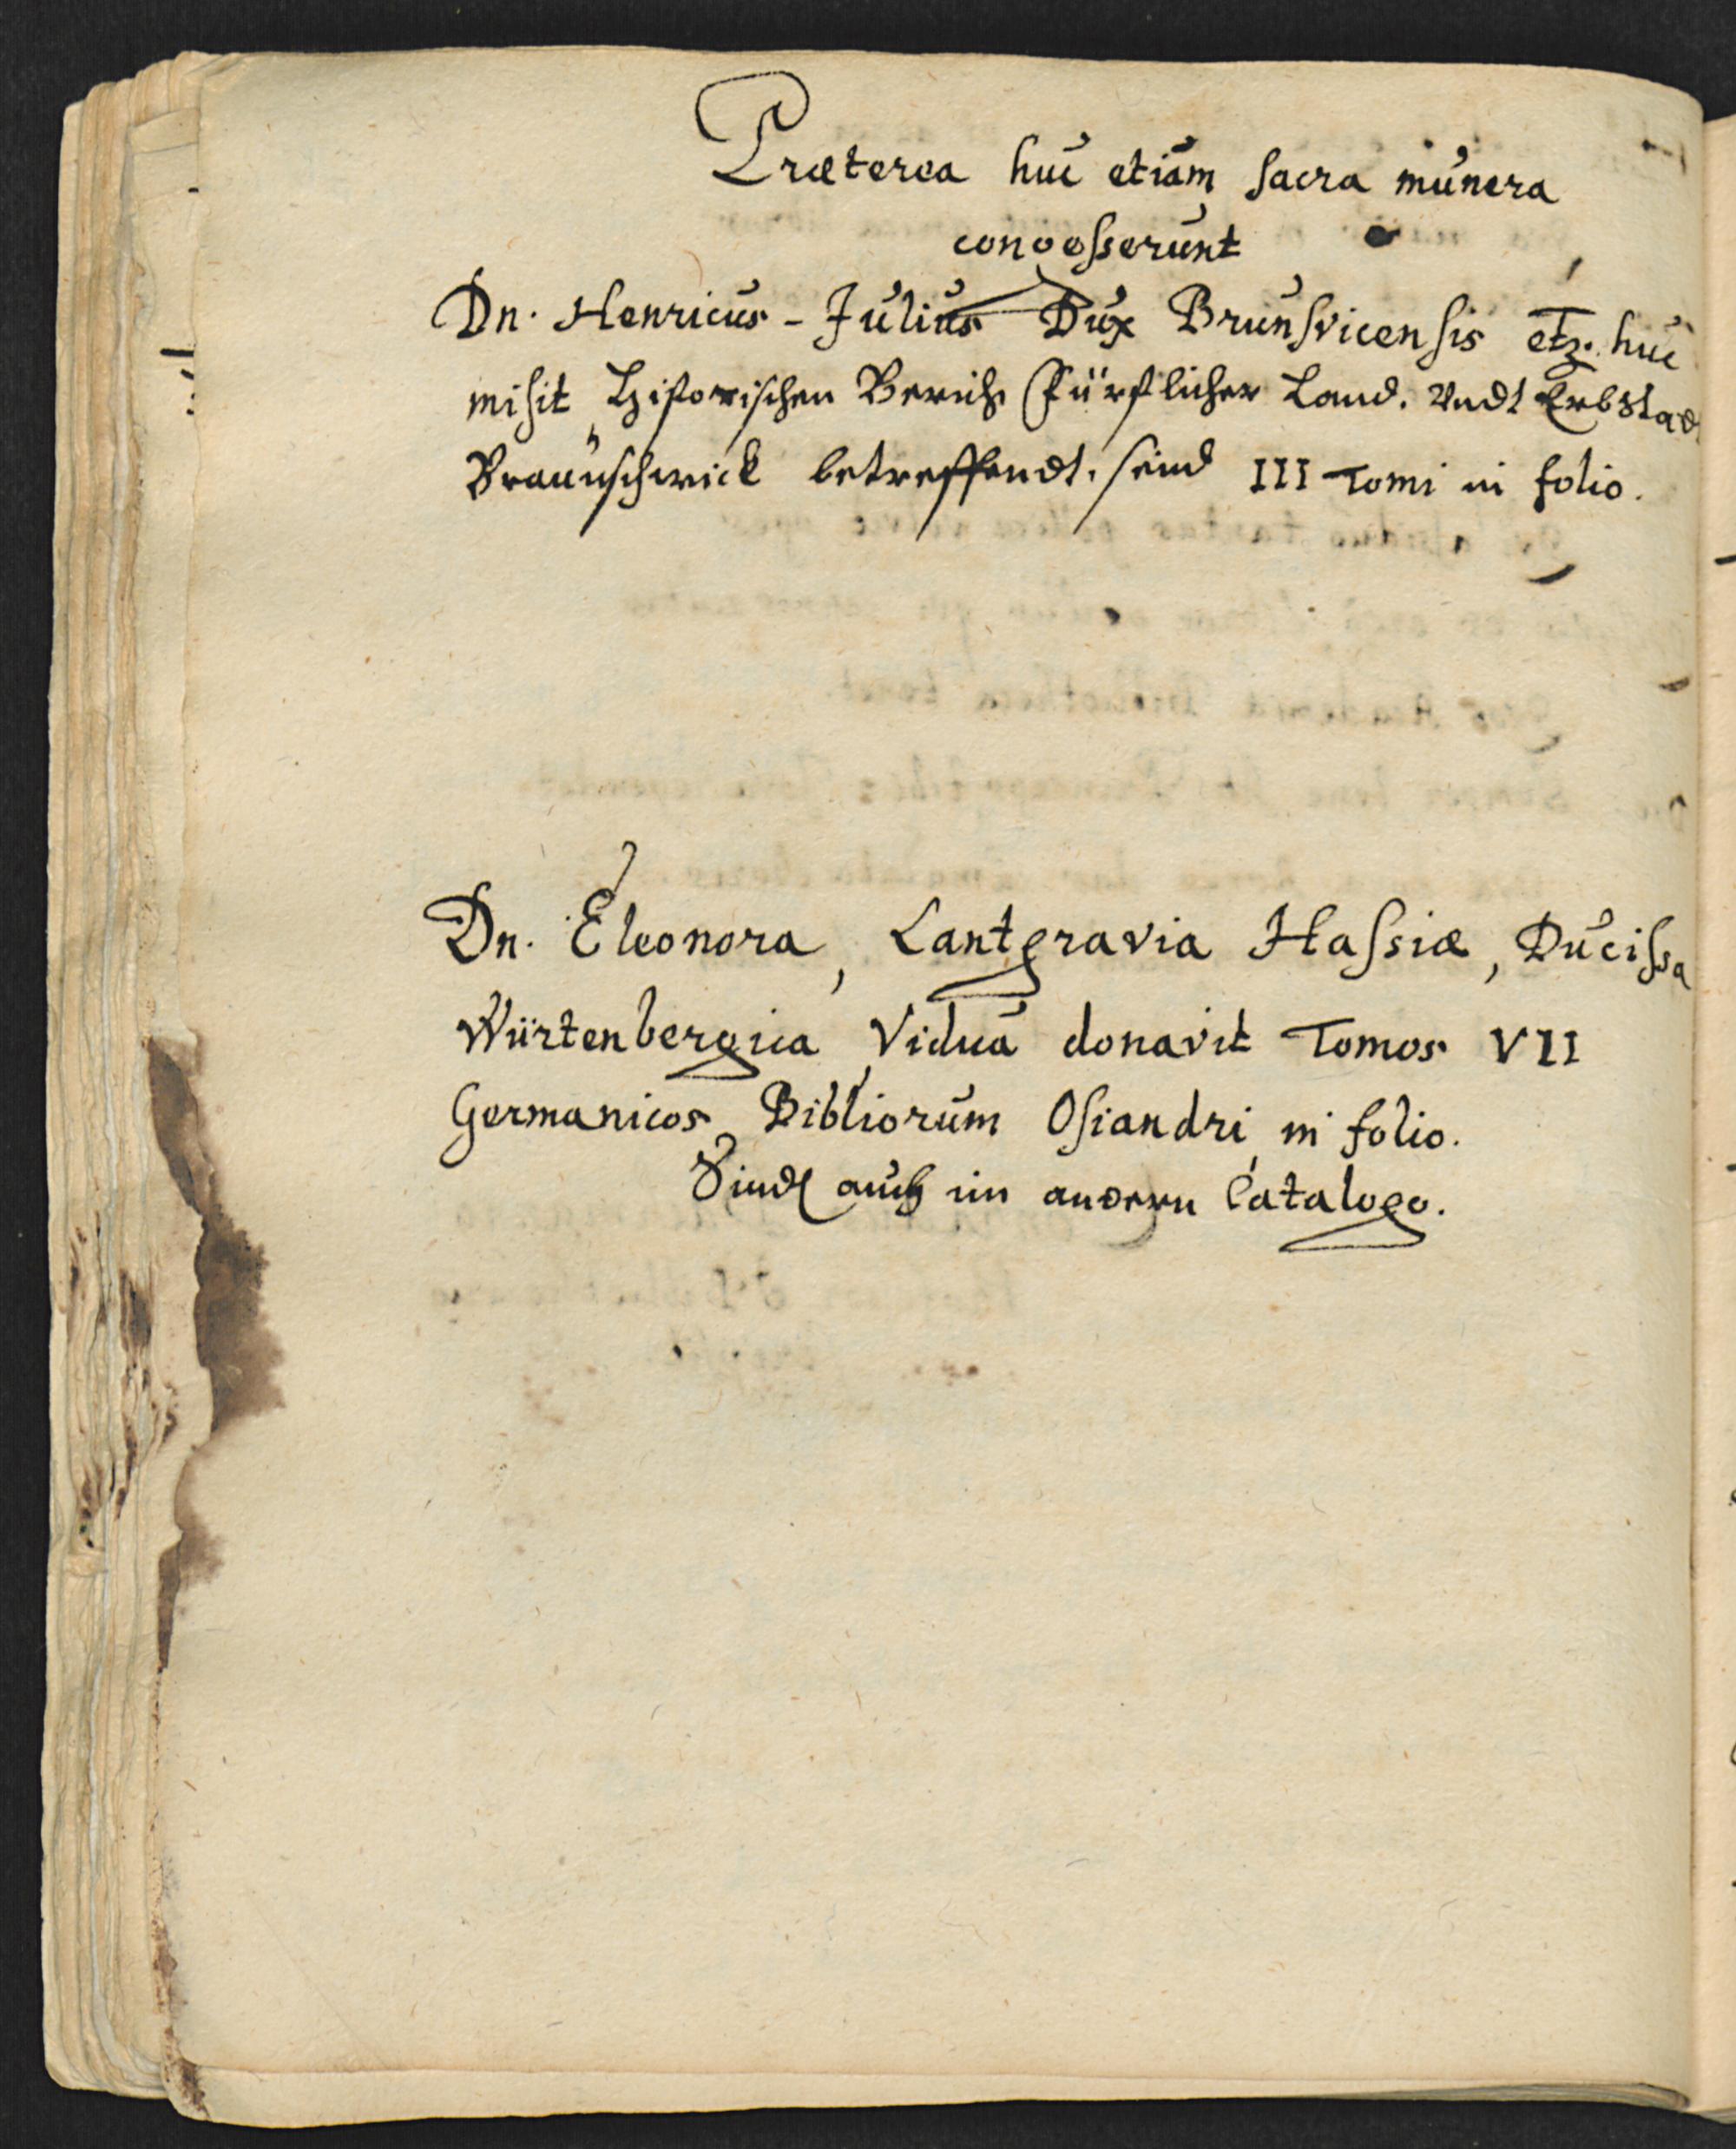 Præterea huc etiam sacra munera
congesserunt
Dn. Henricus-Julius Dux Brunsvicensis etz. huc
misit Historischen Bericht Fürstlicher Land. Undt Erbstad
Braunschwick betreffendt. seind III Tomi in folio.
Dn. Eleonora, Lantgravia Hassiæ, Ducissa
Würtenbergica, Vidua donavit Tomos VII
Germanicos Bibliorum Osiandri in folio.
Sindt auch im andern Catalogo.